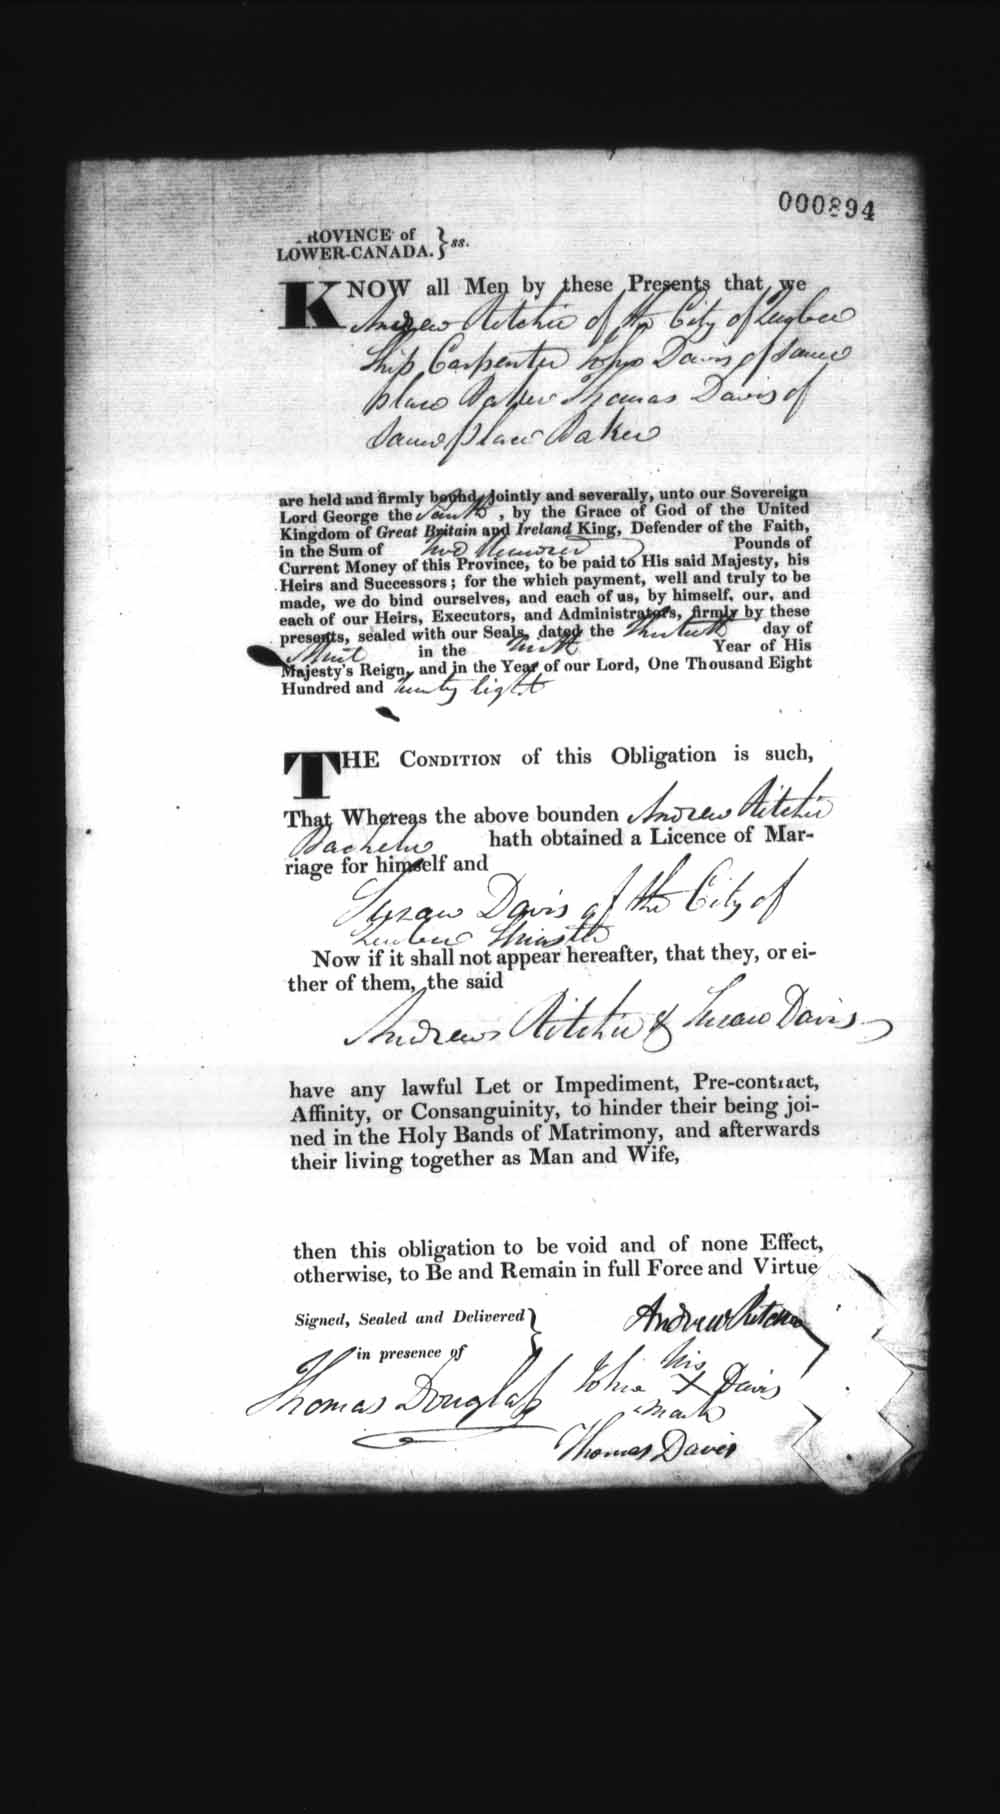 000894
PROVINCE of
LOWER-CANADA. } ss.
KNOW all Men by these Presents that we
Andrew Ritchie of the City of Quebec
Ship Carpenter John Davis of same
place Baker Thomas Davis of
same place Baker
are held and firmly bound, jointly and severally, unto our Sovereign
Lord George the Fourth, by the Grace of God of the United
Kingdom of Great Britain and Ireland King, Defender of the Faith,
in the Sum of Two Hundred Pounds of
Current Money of this Province, to be paid to His said Majesty, his
Heirs and Successors; for the which payment, well and truly to be
made, we do bind ourselves, and each of us, by himself, our, and
each of our Heirs, Executors, and Administrators, firmly by these
presents, sealed with our Seals, dated the day of
in the Ninth Year of His
Majesty's Reign, and in the Year of our Lord, One Thousand Eight
Hundred and twenty eight
THE CONDITION of this Obligation is such,
That Whereas the above bounden Andrew Ritchie
Bachelor hath obtained a Licence of Mar-
riage for himself and
Susan Davis of the City of
Quebec Spinster
Now if it shall not appear hereafter, that they, or ei-
ther of them, the said
Andrew Ritchie & Susan Davis
have any lawful Let or Impediment, Pre-contract,
Affinity, or Consanguinity, to hinder their being joi-
ned in the Holy Bands of Matrimony, and afterwards
their living together as Man and Wife,
then this obligation to be void and of none Effect,
otherwise, to Be and Remain in full Force and Virtue
Signed, Sealed and Delivered }
in presence of
Andrew Ritchie
his
Thomas Douglass John X Davis
mark
Thomas Davis